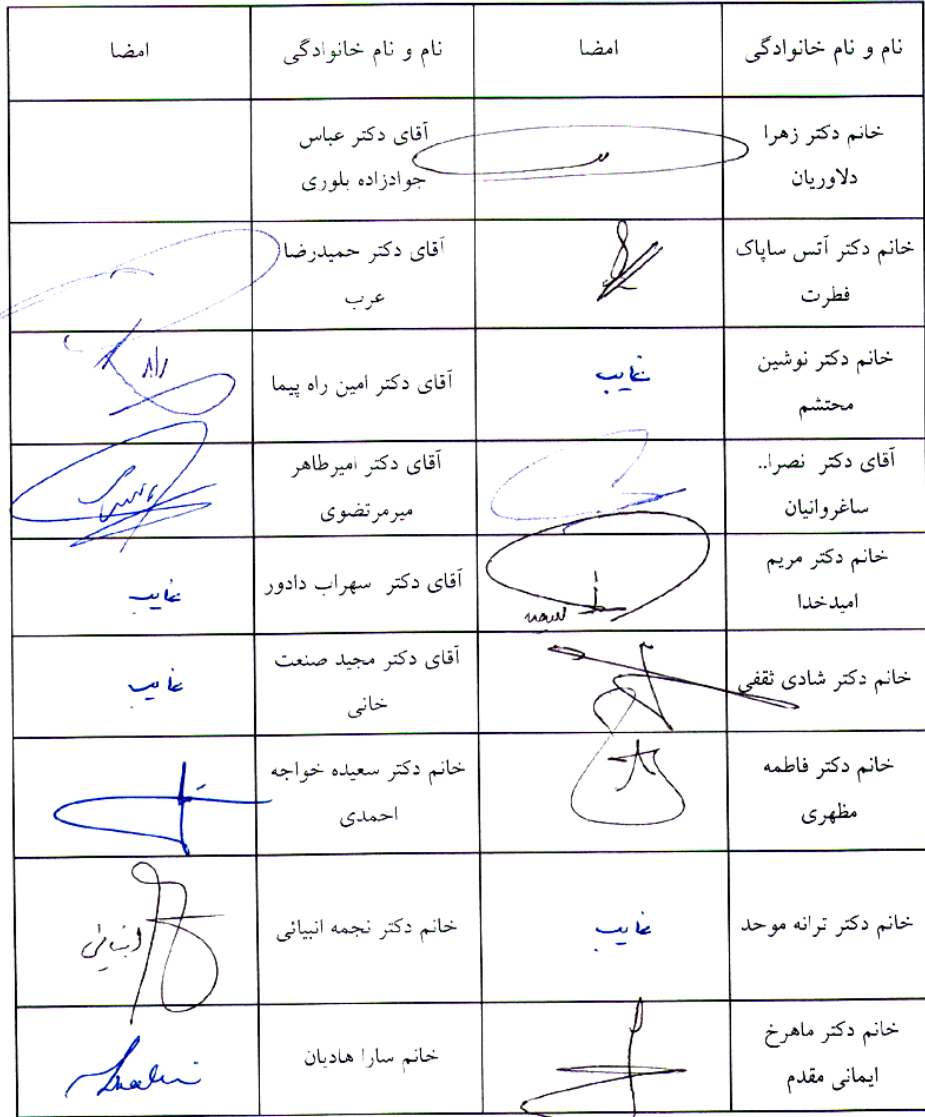 نام و نام خانوادگی
امضا
نام و نام خانوادگی
امضا
خانم دکتر زهرا
دلاوریان
آقای دکتر عباس
جوادزاده بلوری
خانم دکتر آتس ساپاک
فطرت
آقای دکتر حمیدرضا
عرب
خانم دکتر نوشین
محتشم
غایب
آقای دکتر امین راه پیما
آقای دکتر نصرا..
ساغروانیان
آقای دکتر امیرطاهر
میرمرتضوی
خانم دکتر مریم
امیدخدا
آقای دکتر سهراب دادور
غایب
خانم دکتر شادی ثقفی
آقای دکتر مجید صنعت
خانی
غایب
خانم دکتر فاطمه
مظهری
خانم دکتر سعیده خواجه
احمدی
خانم دکتر ترانه موحد
غایب
خانم دکتر نجمه انبیائی
انبیائی
خانم دکتر ماهرخ
ایمانی مقدم
خانم سارا هادیان